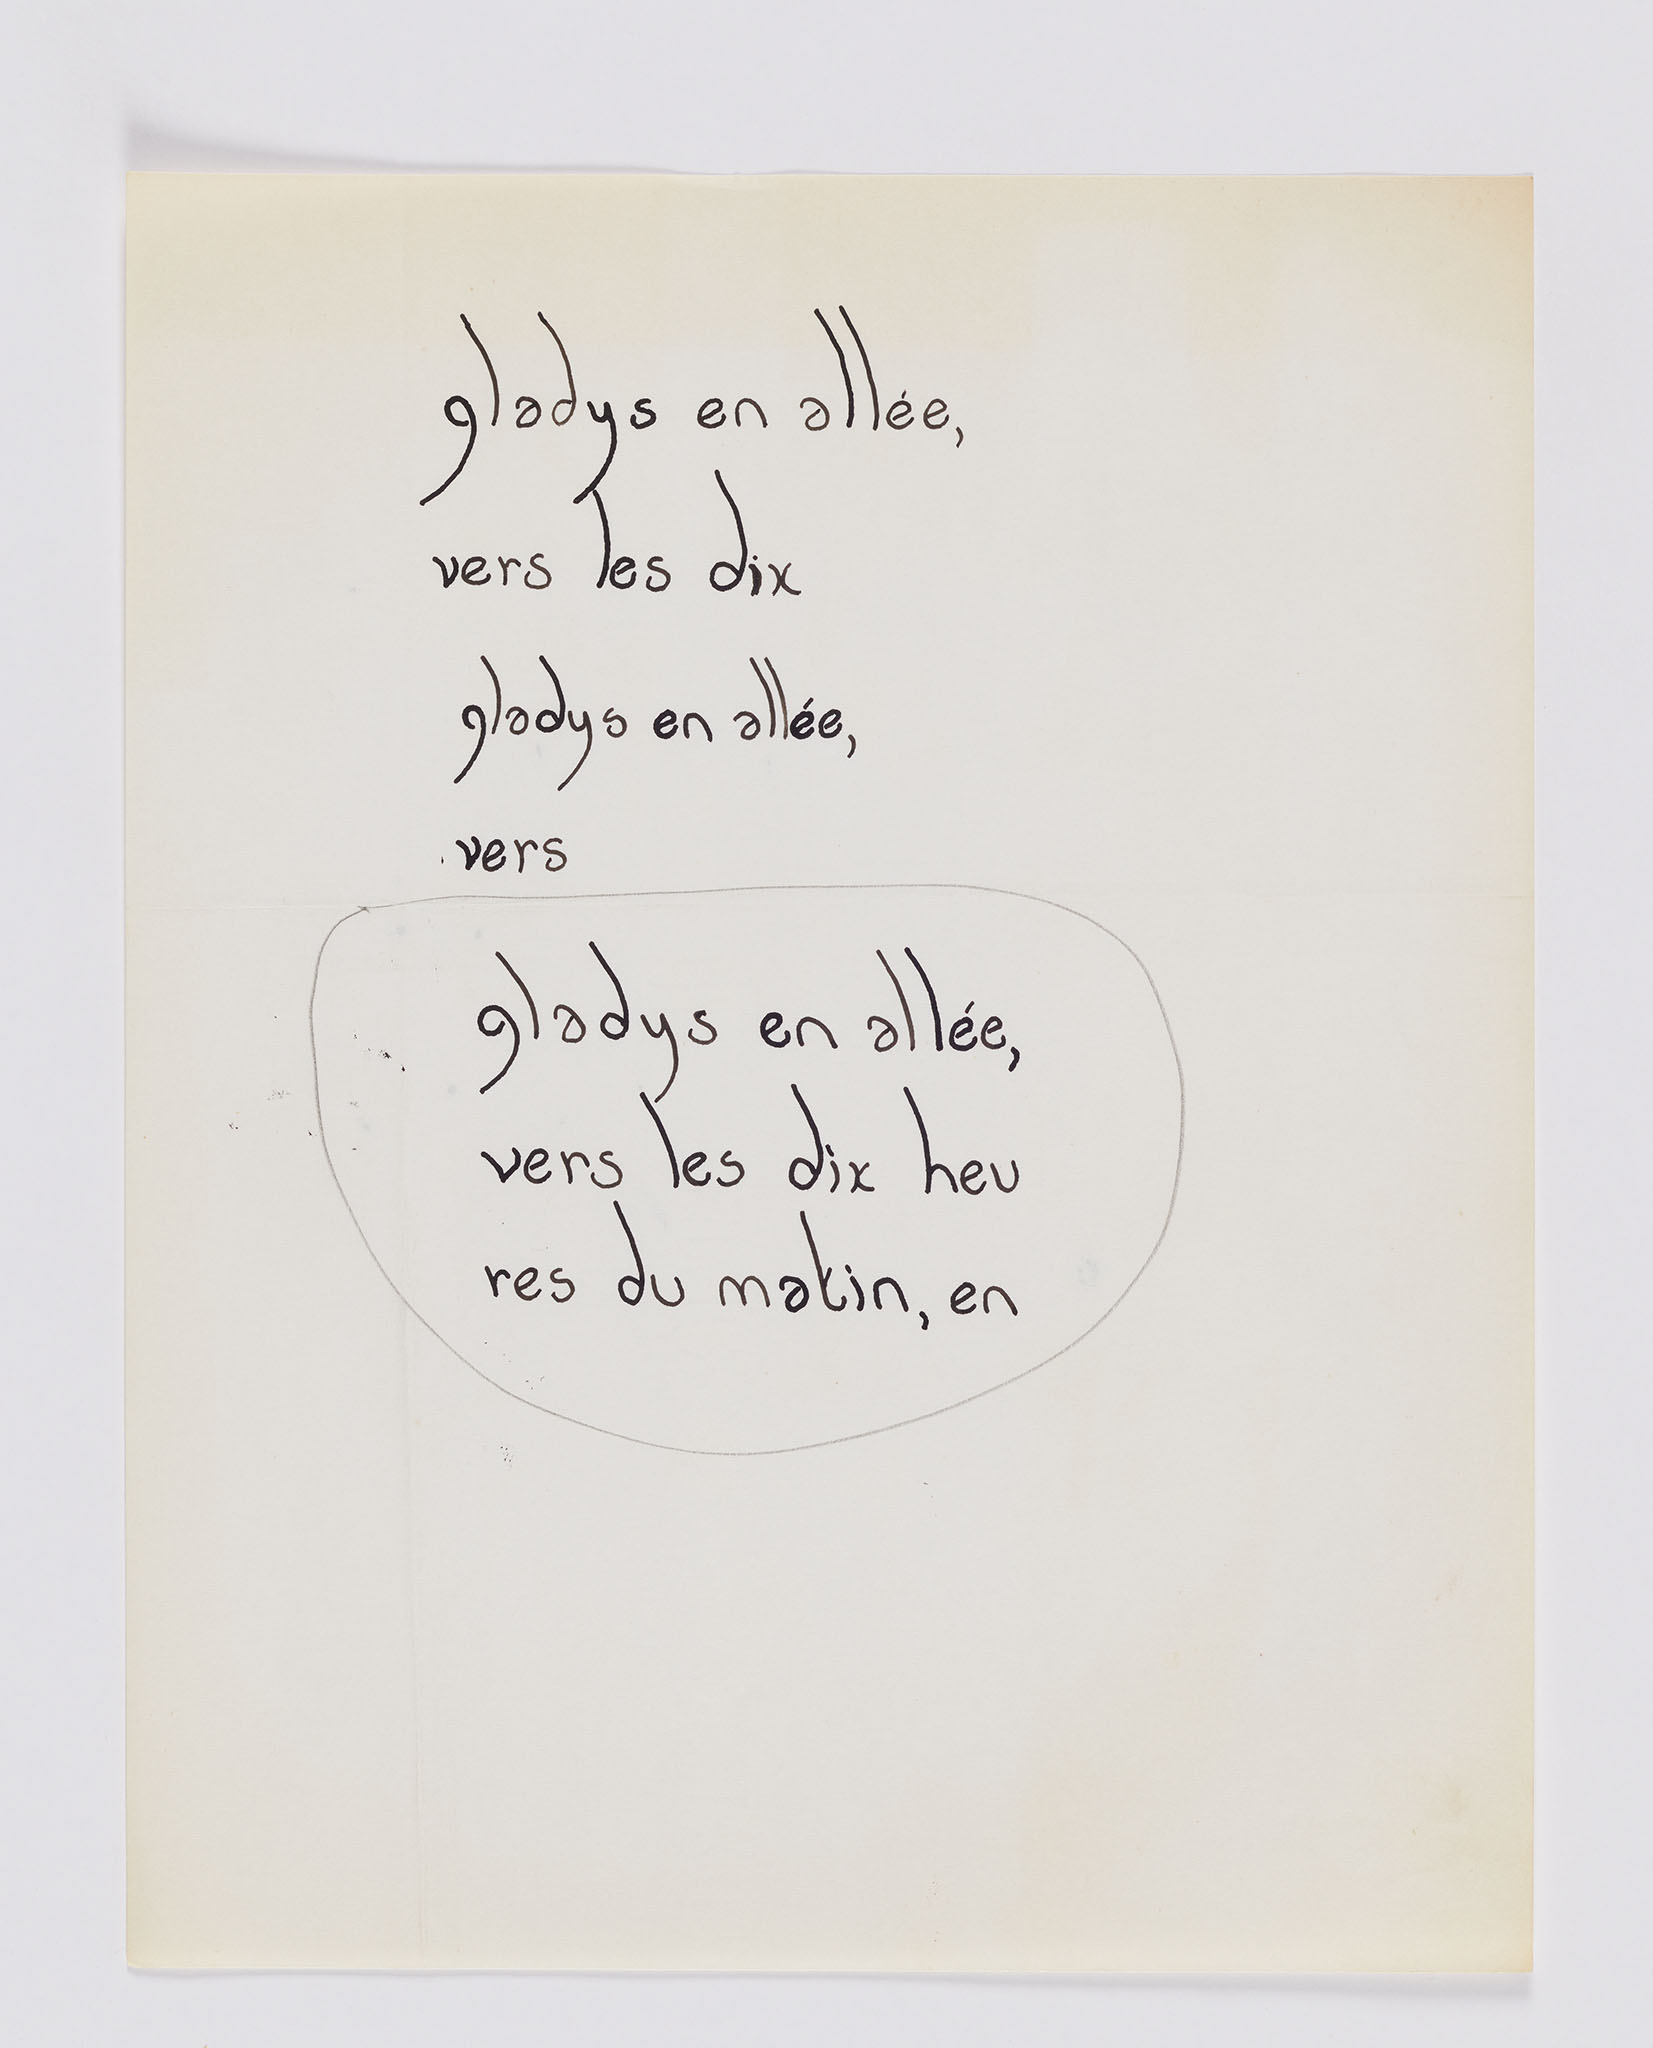 gladys en allée,
vers les dix
gladys en allée,
vers
gladys en allée,
vers les dix heu
res du matin, en